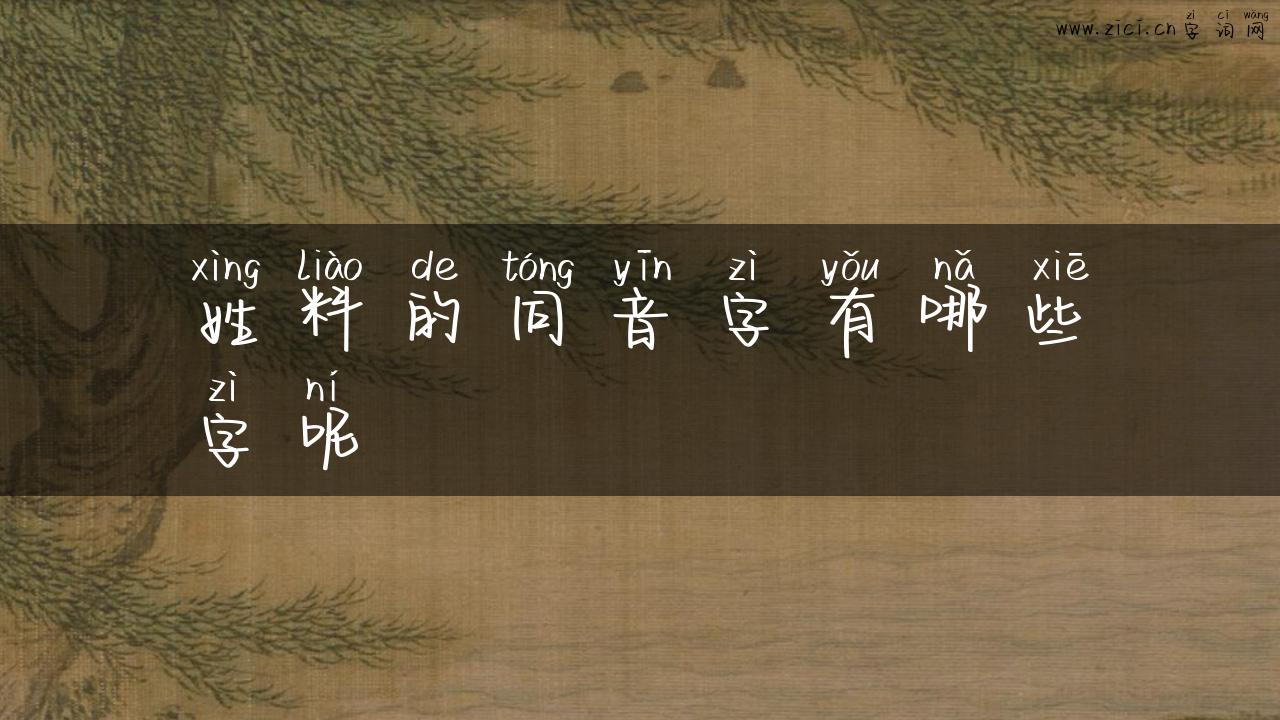 zì cí wǎng
www.zici.cn 字词网
xìng liào de tóng yīn zì yǒu nǎ xiē
姓料的同音字有哪些
zì ní
字呢